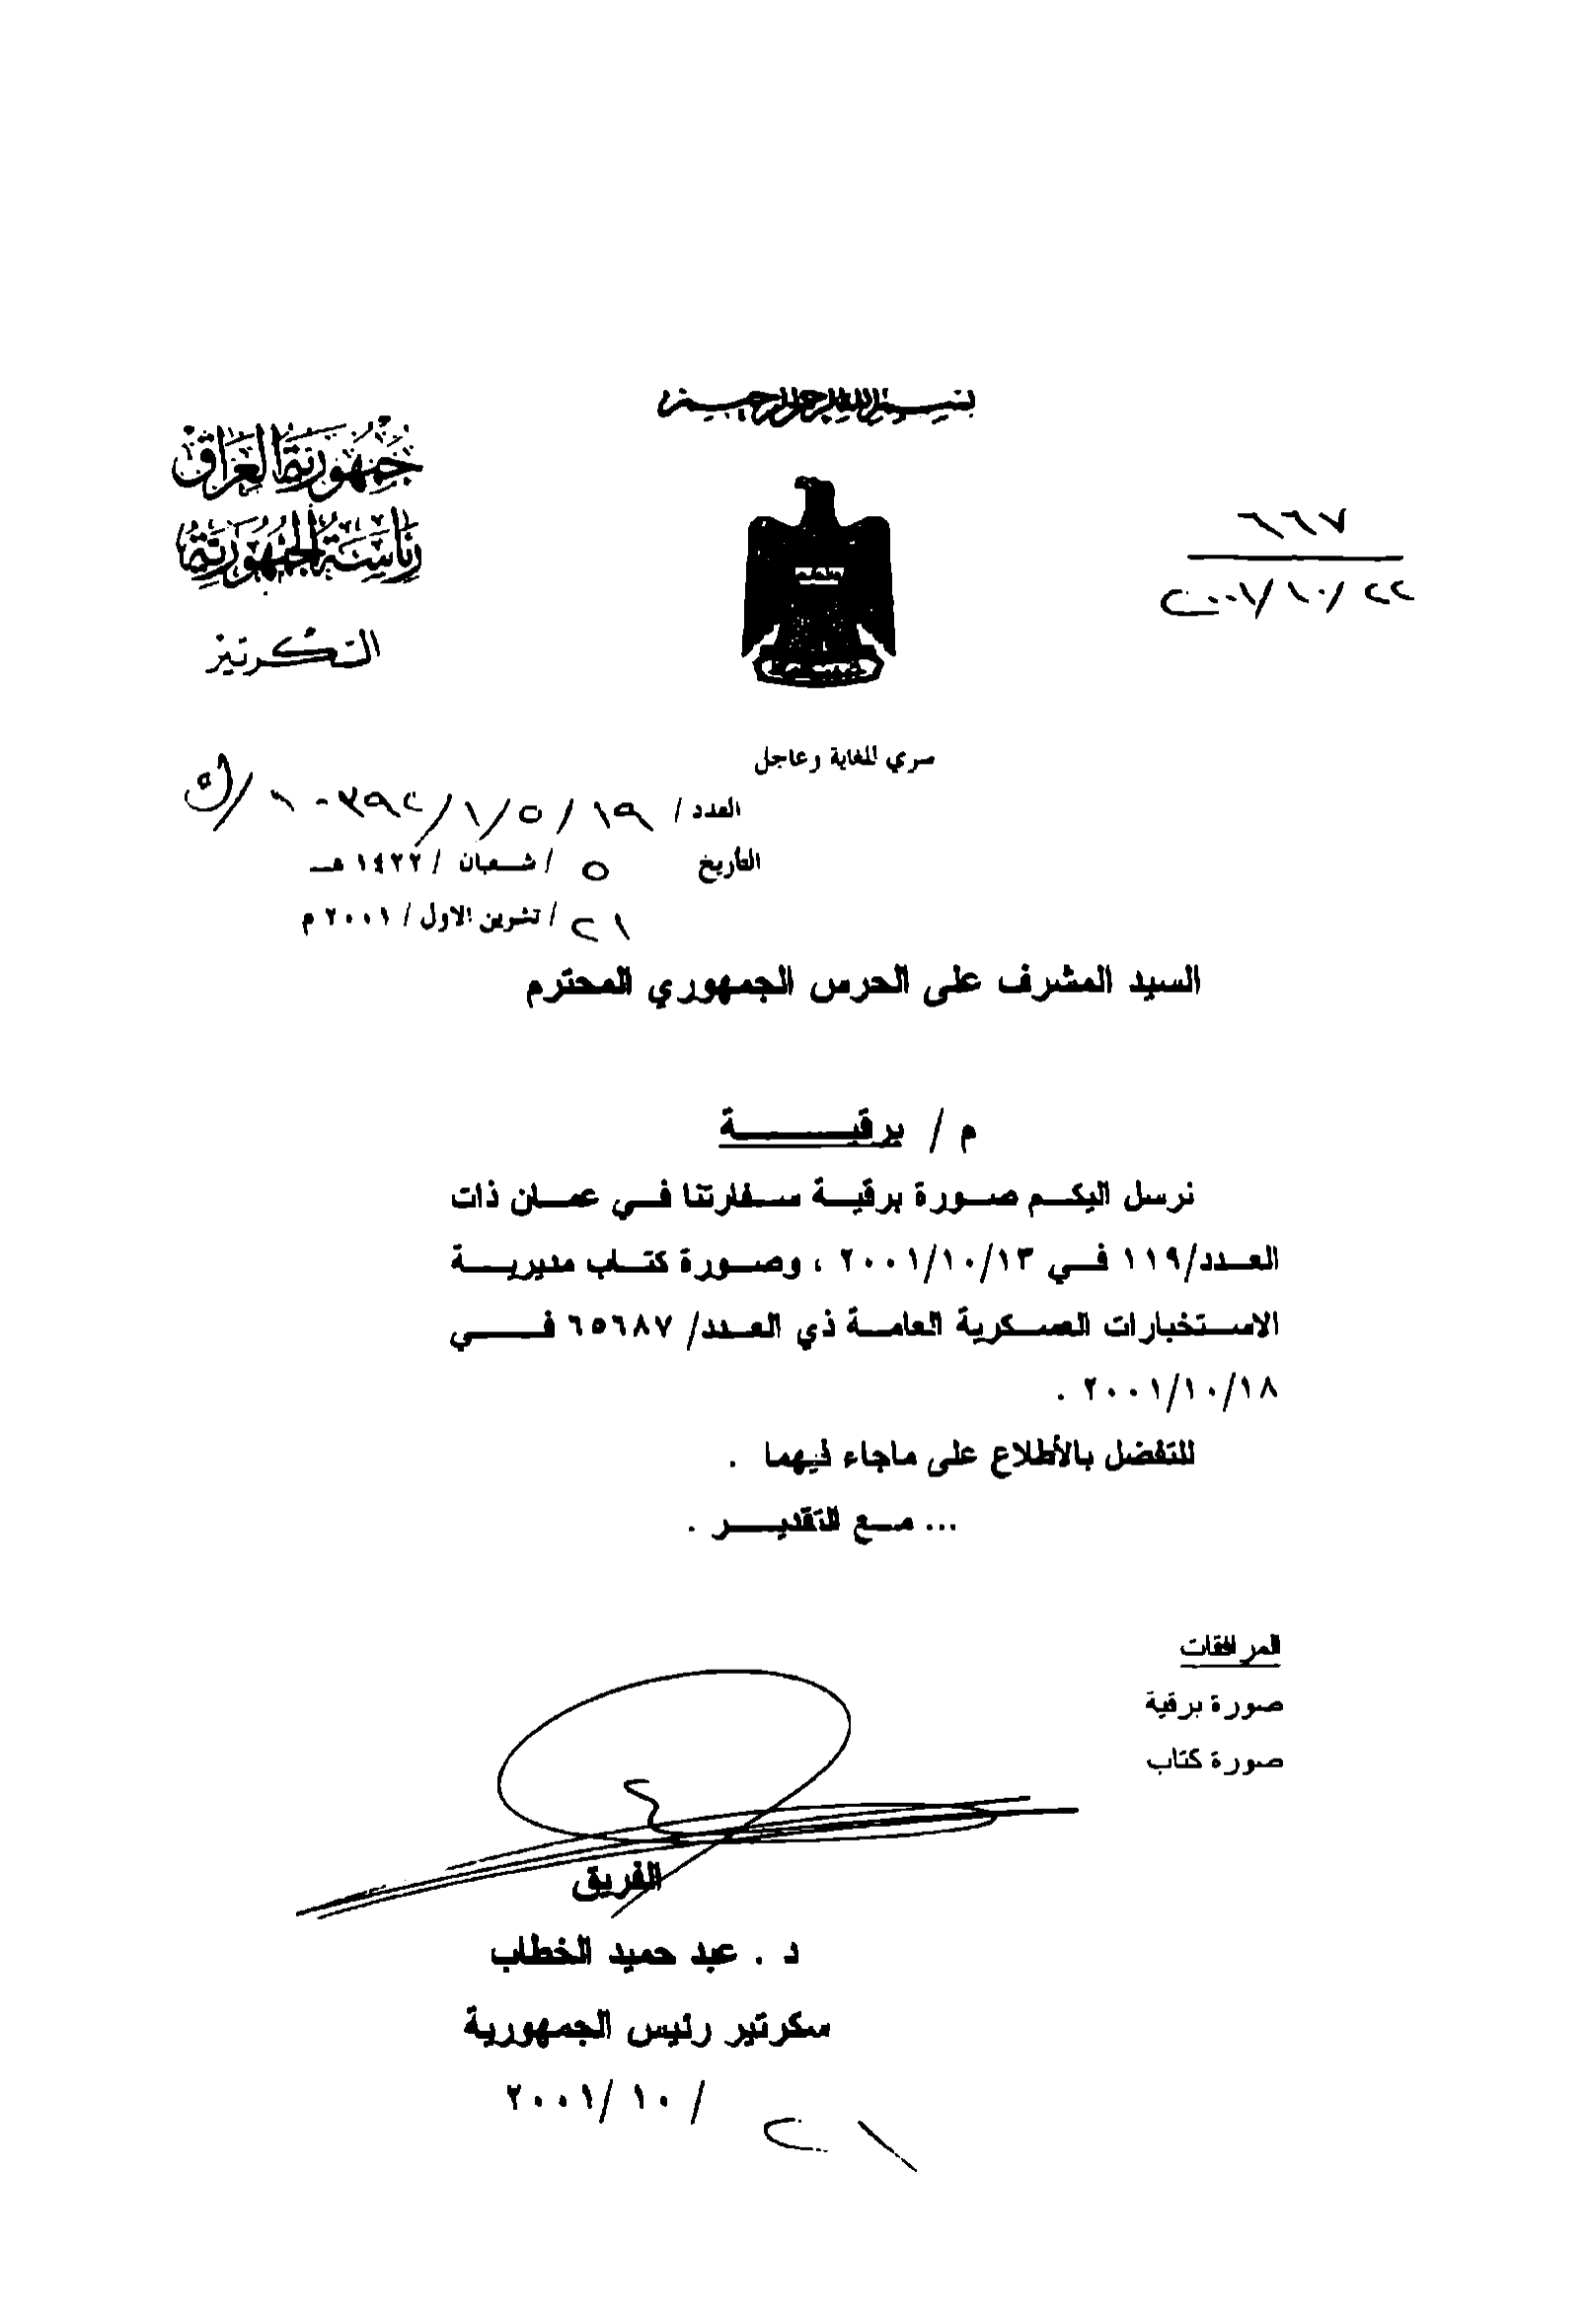 بسم الله الرحمن الرحيم
جمهورية العراق
رئاسة الجمهورية
السكرتير
٦٦٧
٢٠٠١/١٠/٢٢
سري للغاية وعاجل
العدد / ١٩ / ٥ / ١ /
التأريخ ٥ / شعبان / ١٤٢٢ هـ
٢١ / تشرين الاول / ٢٠٠١ م
السيد المشرف على الحرس الجمهوري المحترم
م / برقية
نرسل اليكم صورة برقية سفارتنا في عمان ذات
العدد/١١٩ في ٢٠٠١/١٠/١٣ ، وصورة كتاب مديرية
الاستخبارات العسكرية العامة ذي العدد/ ٦٥٦٨٧ في
٢٠٠١/١٠/١٨ .
للتفضل بالأطلاع على ماجاء فيهما .
... مع التقدير .
المرافقات
صورة برقية
صورة كتاب
الفريق
د . عبد حميد الخطاب
سكرتير رئيس الجمهورية
٢١ / ١٠ /٢٠٠١